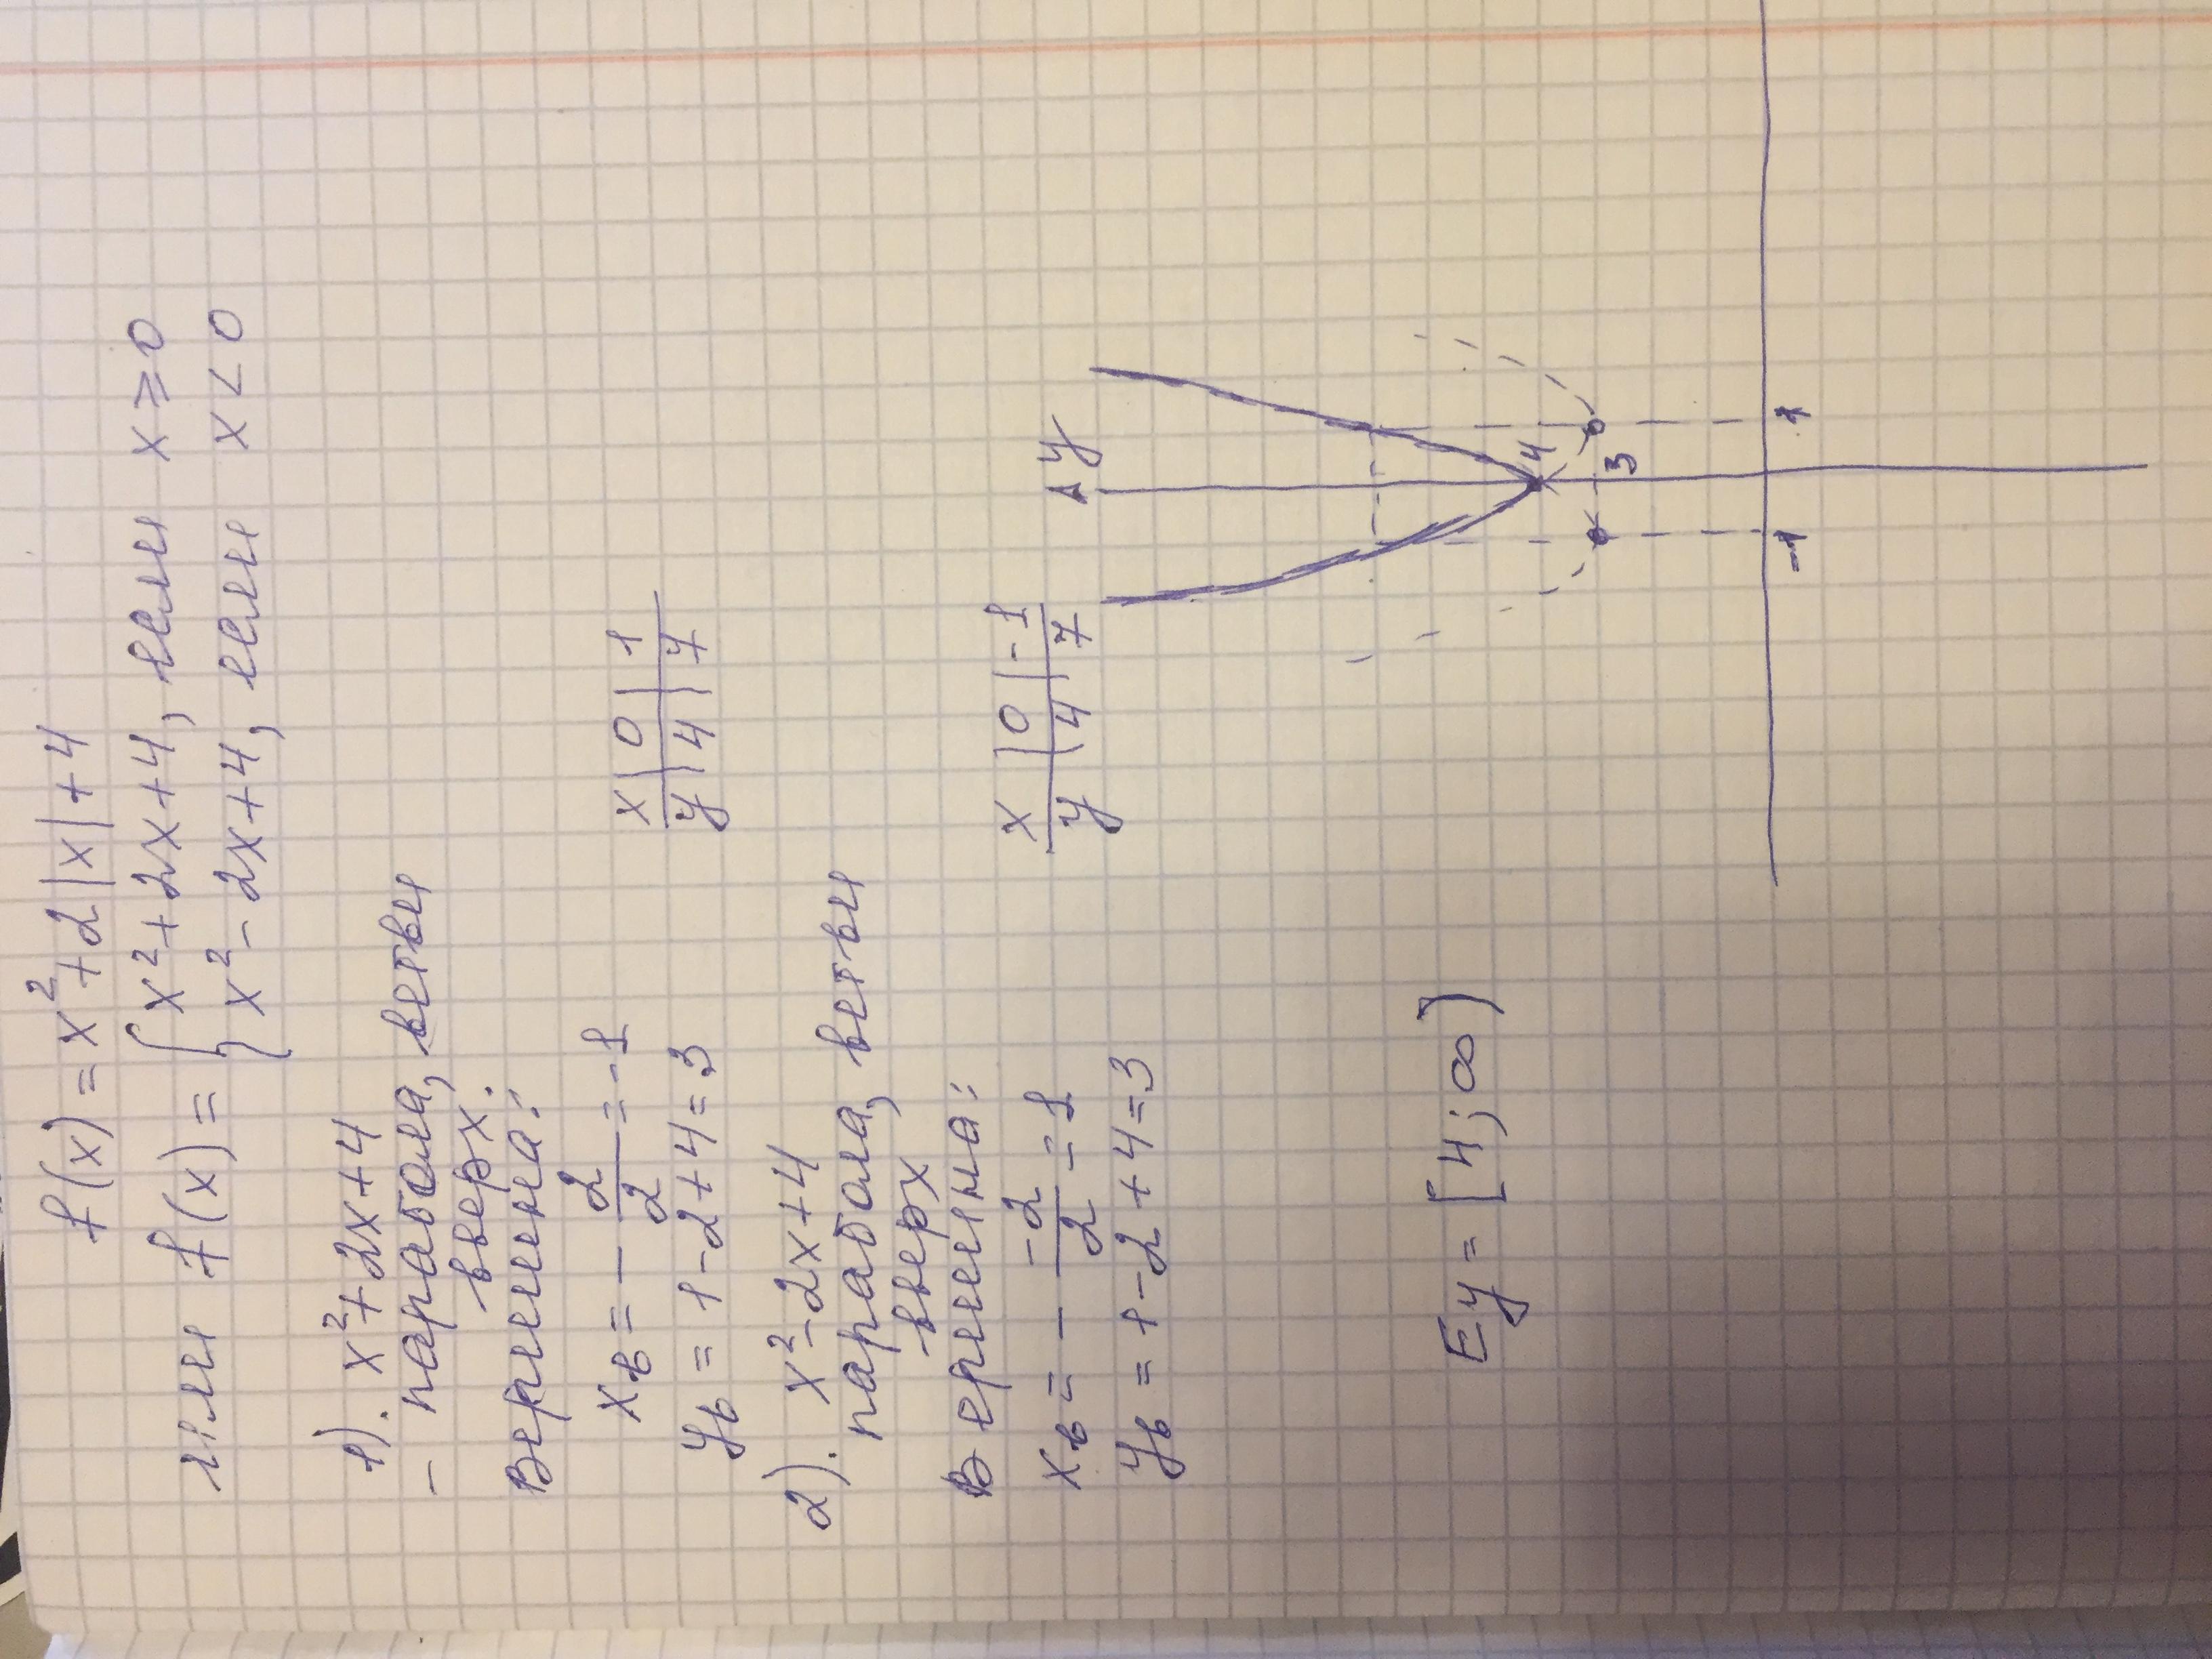 f(x) = x² + 2|x| + 4
или f(x) = { x² + 2x + 4, если x ≥ 0
x² - 2x + 4, если x < 0
1). x² + 2x + 4
- парабола, ветви
вверх.
Вершина:
xв = - 2/2 = -1
yв = 1 - 2 + 4 = 3
x | 0 | 1
y | 4 | 7
2). x² - 2x + 4
парабола, ветви
вверх
Вершина:
xв = - -2/2 = 1
yв = 1 - 2 + 4 = 3
x | 0 | -1
y | 4 | 7
y
4
3
-1 1
Ey = [4; ∞)